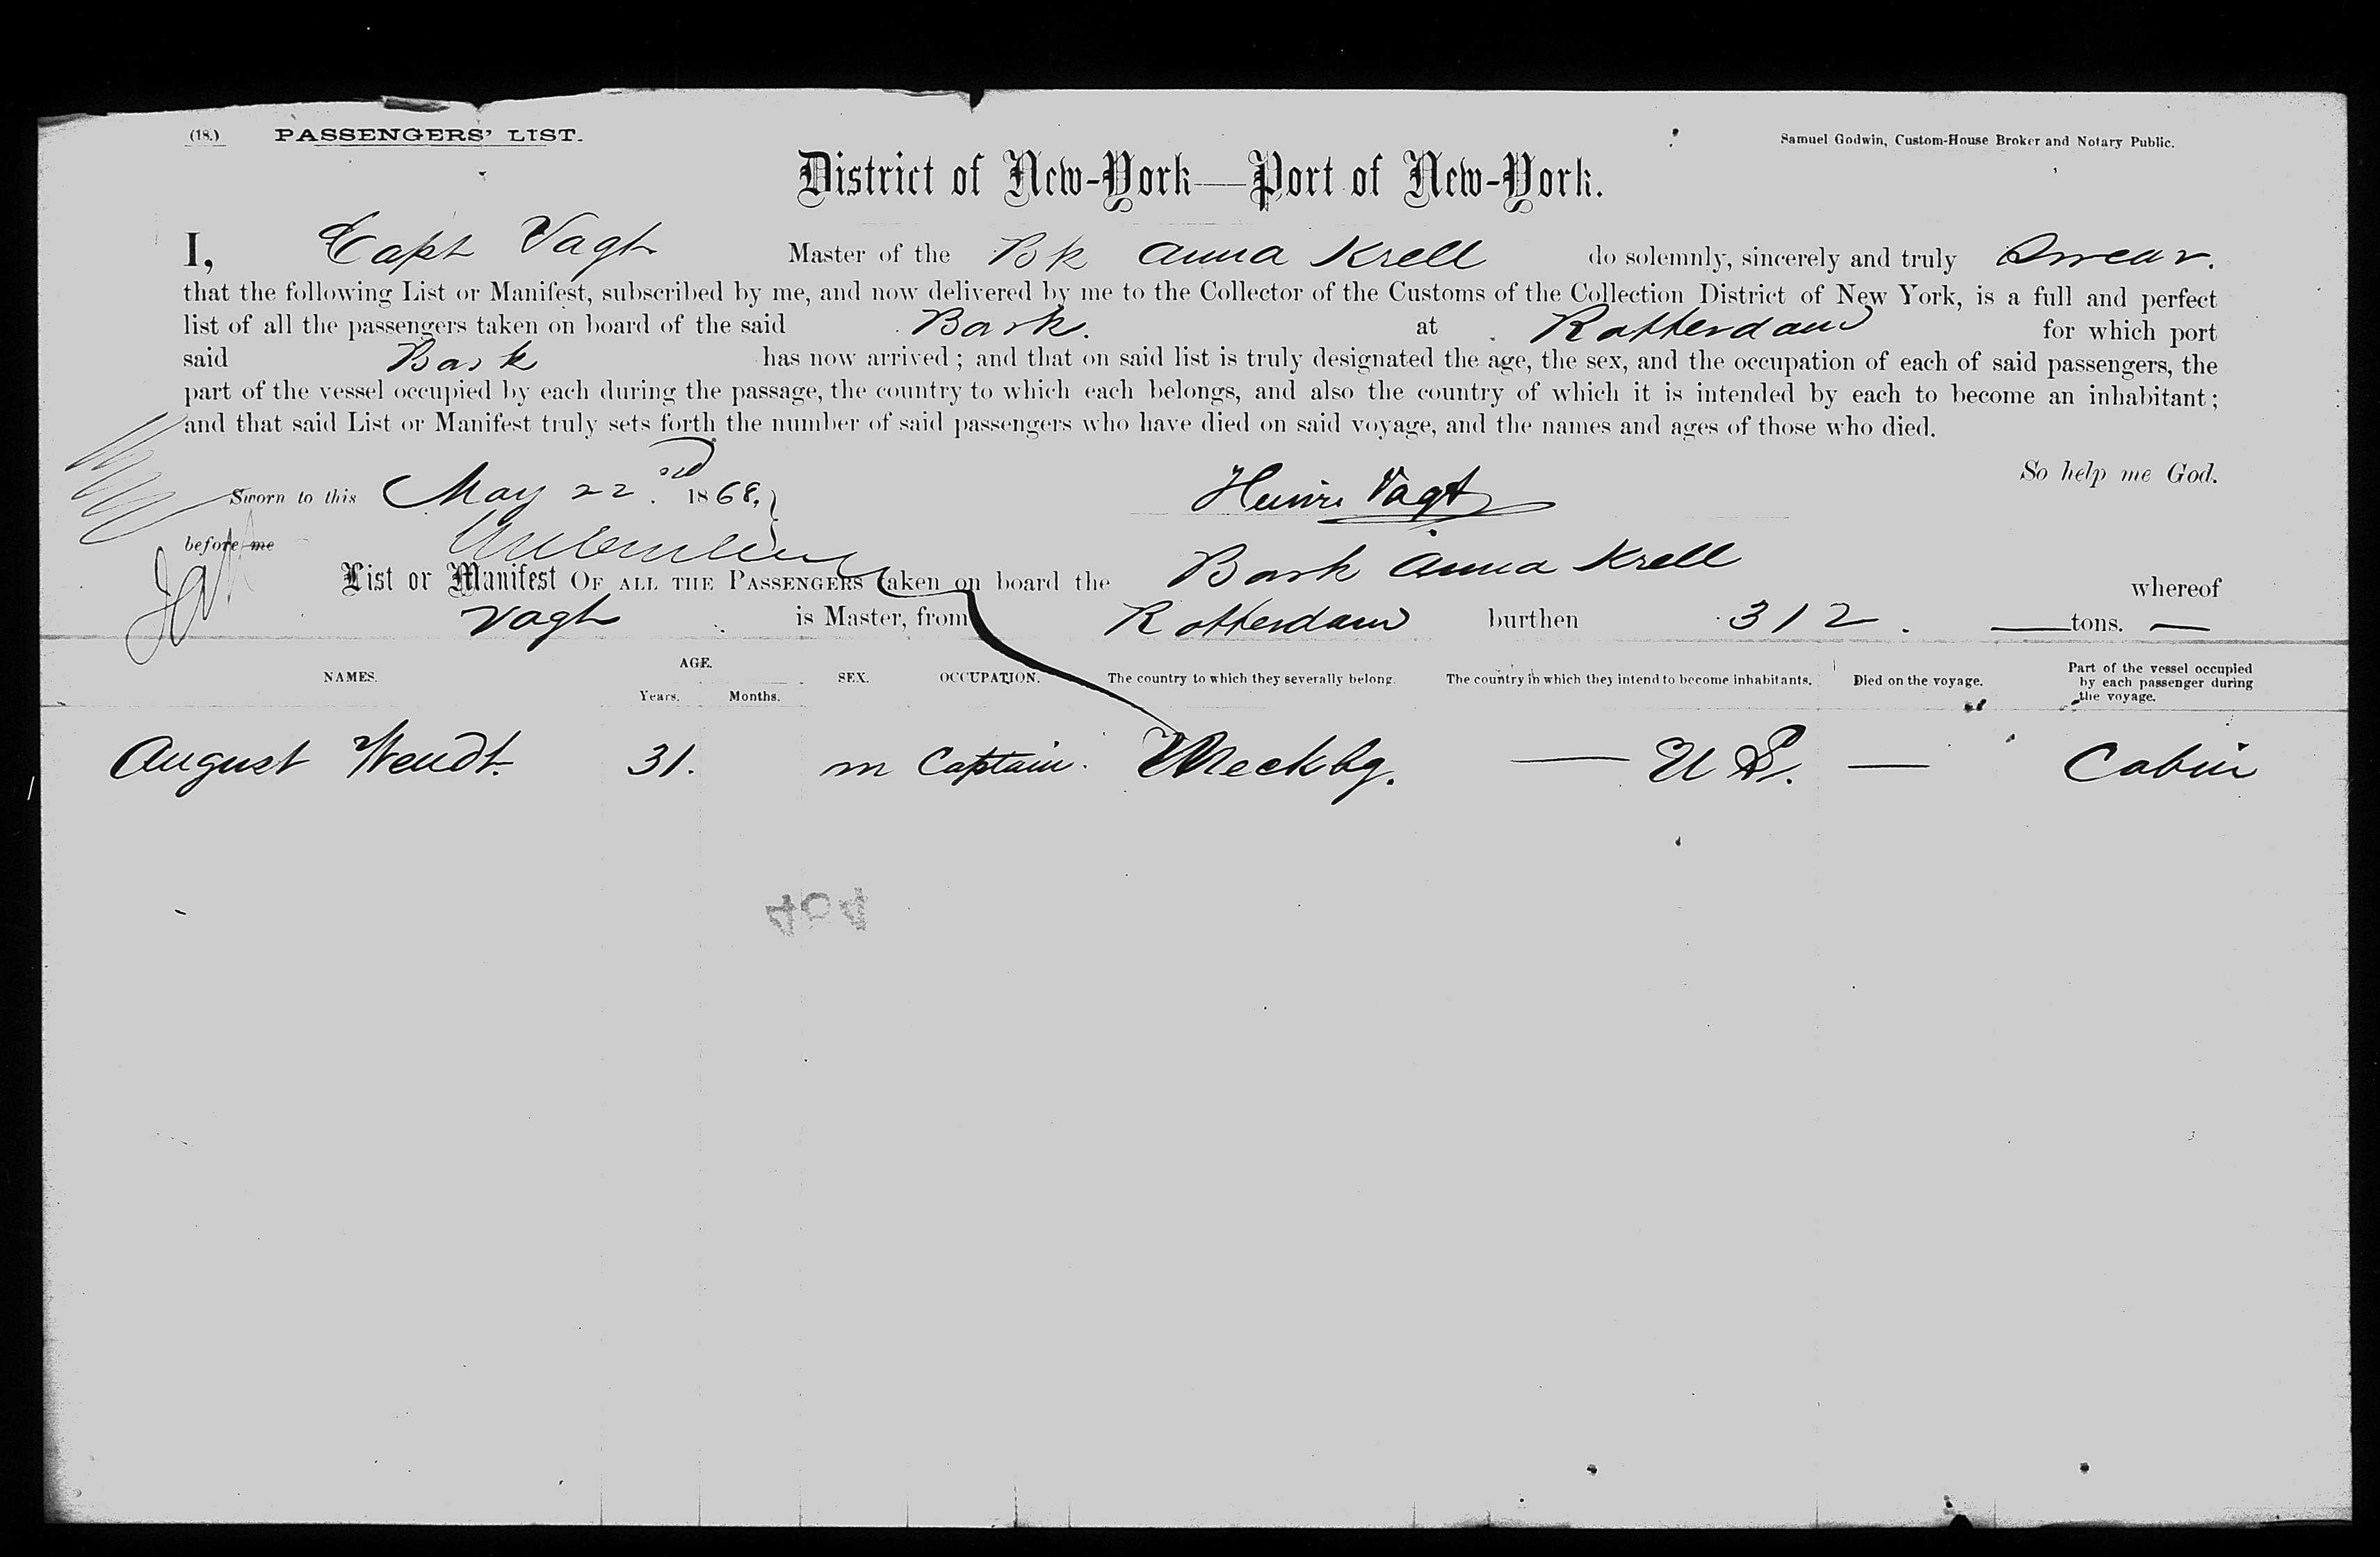 (18.) PASSENGERS' LIST. Samuel Godwin, Custom-House Broker and Notary Public.
District of New-York—Port of New-York.
I, Capt Vagt Master of the Bk Anna Krell do solemnly, sincerely and truly Swear.
that the following List or Manifest, subscribed by me, and now delivered by me to the Collector of the Customs of the Collection District of New York, is a full and perfect
list of all the passengers taken on board of the said Bark. at Rotterdam for which port
said Bark has now arrived; and that on said list is truly designated the age, the sex, and the occupation of each of said passengers, the
part of the vessel occupied by each during the passage, the country to which each belongs, and also the country of which it is intended by each to become an inhabitant;
and that said List or Manifest truly sets forth the number of said passengers who have died on said voyage, and the names and ages of those who died.
So help me God.
Sworn to this May 22.nd 1868. Vagt
before me
List or Manifest OF ALL THE PASSENGERS taken on board the Bark Anna Krell whereof
Vagt is Master, from Rotterdam burthen 312. tons.
NAMES. AGE. Years. Months. SEX. OCCUPATION. The country to which they severally belong. The country in which they intend to become inhabitants. Died on the voyage. Part of the vessel occupied by each passenger during the voyage.
August Wendt. 31. m Captain. Meckbg. — U S. — Cabin
404